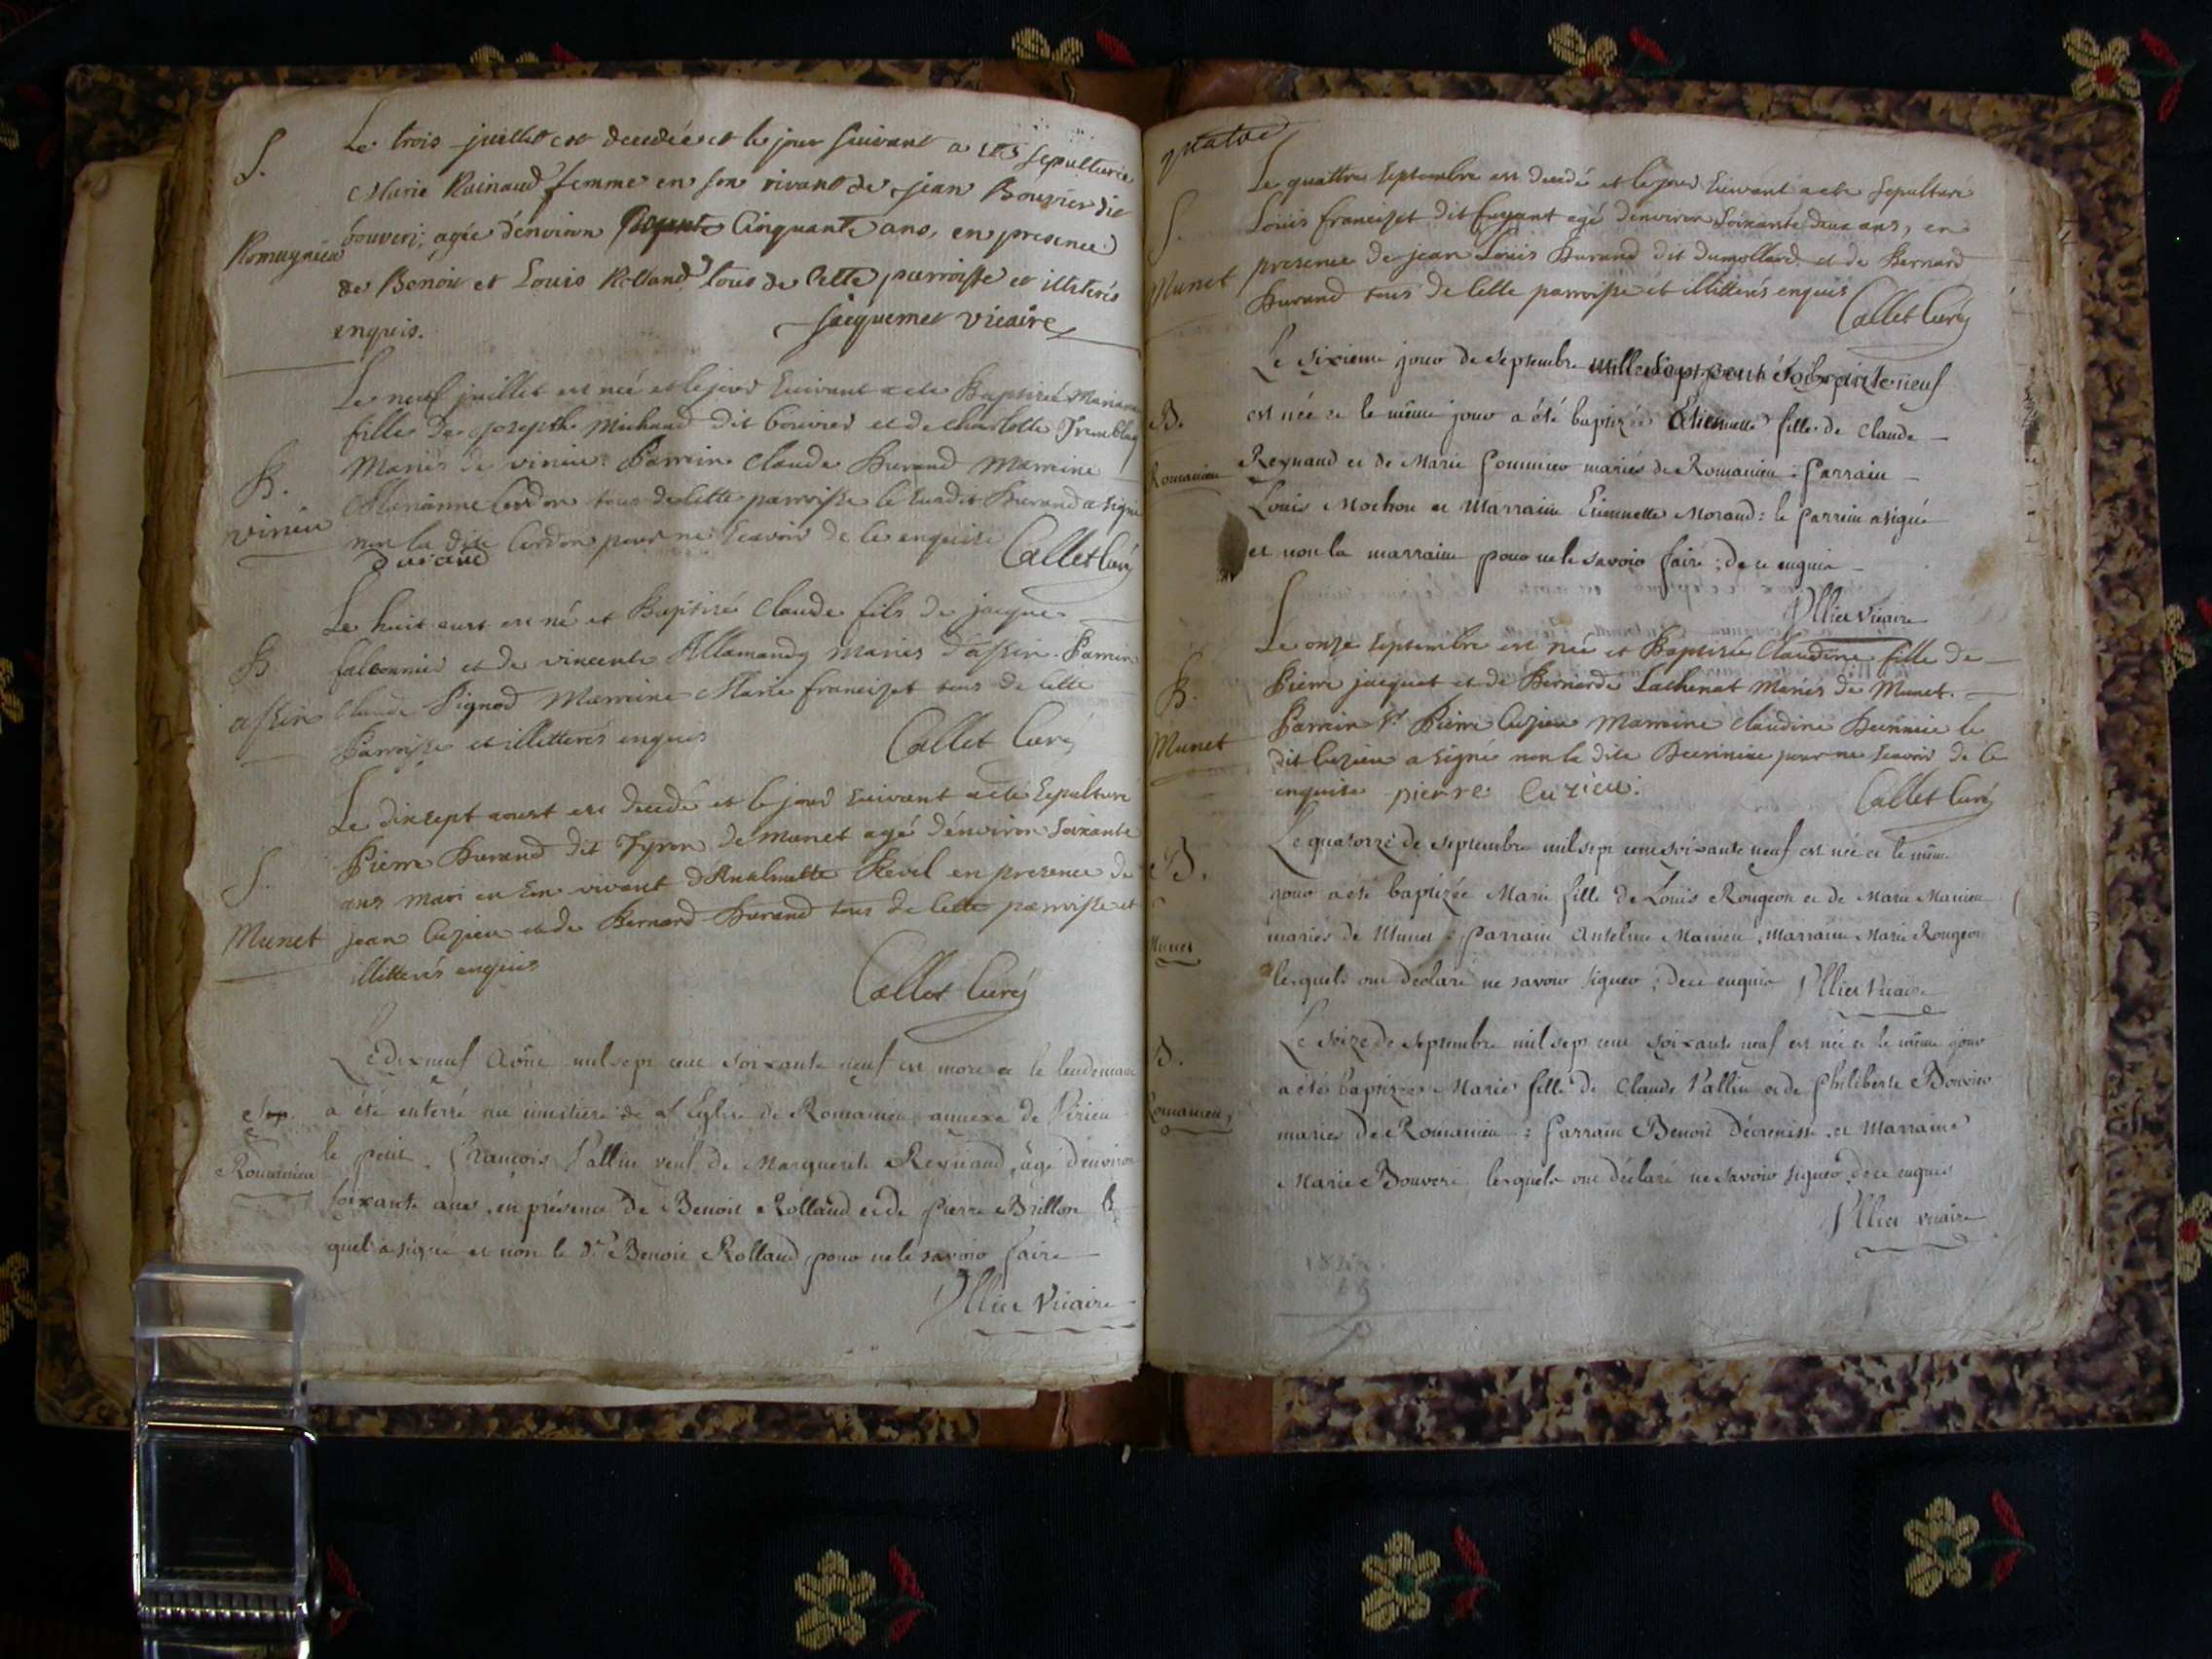 S.
Romagnieu
Le trois juillet est decedée et le jour suivant a été sepulturée
Marie Rainaud femme en son vivant de jean Bouvier dit
bouveri, agée d'environ Cinquante ans, en presence
de Benoit et Louis Rolland tous de Cette parroisse et illiterés
enquis.
jacquemet vicaire
B.
virieu
Le neuf juillet est née et le jour suivant a ete Baptisée Marianne
fille de joseph Michaud dit bouvier et de charlotte Tremblay
Mariés de virieu. Parrein Claude Durand Marreine
Marianne Cerdon tous de Cette parroisse le susdit Durand a signé
non la dite Cerdon pour ne scavoir de ce enquise
Durand
Callet Curé
B.
assin
Le huit aust est né et Baptisé Claude fils de jacque
falconnier et de vincente Allamandy Mariés d'assin. Parrein
Claude Pignod Marreine Marie francizet tous de Cette
Parroisse et illitterés enquis
Callet Curé
S.
Munet
Le dix sept aoust est decedé et le jour suivant a ete Sepulturé
Pierre Durand dit Tyron de Munet agé d'environ soixante
ans mari en son vivant d'Anthelmette Revel en presence de
jean Cuzieu et de Bernard Durand tous de Cette parroisse et
illitterés enquis
Callet Curé
Sep.
Romanieu
Le dix neuf Août mil sept cent soixante neuf est mort et le lendemain
a été enterré au cimetiere de l'Eglise de Romanieu annexe de Virieu
le petit, François Vallin veuf de Marguerite Reynaud, âgé d'environ
soixante ans, en présence de Benoit Rolland et de Pierre Brillon le
quel a signé et non le dt Benoit Rolland, pour ne le savoir faire
Ullier Vicaire
quatre
S.
Munet
Le quattre Septembre est decedé et le jour suivant a ete Sepulturé
Louis francizet dit fuyant agé d'environ soixante deux ans, en
presence de jean Louis Durand dit Dumollard et de Bernard
Durand tous de Cette parroisse et illitterés enquis
Callet Curé
B.
Romanieu
Le sixieme jour de septembre mille sept cent soixante neuf
est née et le même jour a été baptizée Etiennette fille de Claude
Reynaud et de Marie Pommier mariés de Romanieu: Parrain
Louis Mochon et Marraine Etiennette Morand: le Parrein a signé
et non la marraine pour ne le savoir faire; de ce enquis
Ullier Vicaire
B.
Munet
Le onze Septembre est née et Baptisée Claudine fille de
Pierre jacquet et de Bernarde Lathenat Mariés de Munet.
Parrein Sr Pierre Cuzieu Marreine Claudine le
dit Cuzieu a signé non la dite pour ne scavoir de ce
enquise pierre Cuzieu.
Callet Curé
B.
Munet
Le quatorze de Septembre mil sept cent soixante neuf est née et le même
jour a été baptizée Marie fille de Louis Rougeon et de Marie Manieu
mariés de Munet: Parrain Anselme Manieu, Marraine Marie Rougeon
lesquels ont déclaré ne savoir signer; de ce enquis Ullier Vicaire
B.
Romanieu
Le seize de Septembre mil sept cent soixante neuf est née et le même jour
a été baptizée Marie fille de Claude Vallin et de Philiberte Bouvier
mariés de Romanieu: Parrain Benoit Décrenisse, et Marraine
Marie Bouveri, lesquels ont déclaré ne savoir signer de ce enquis
Ullier vicaire